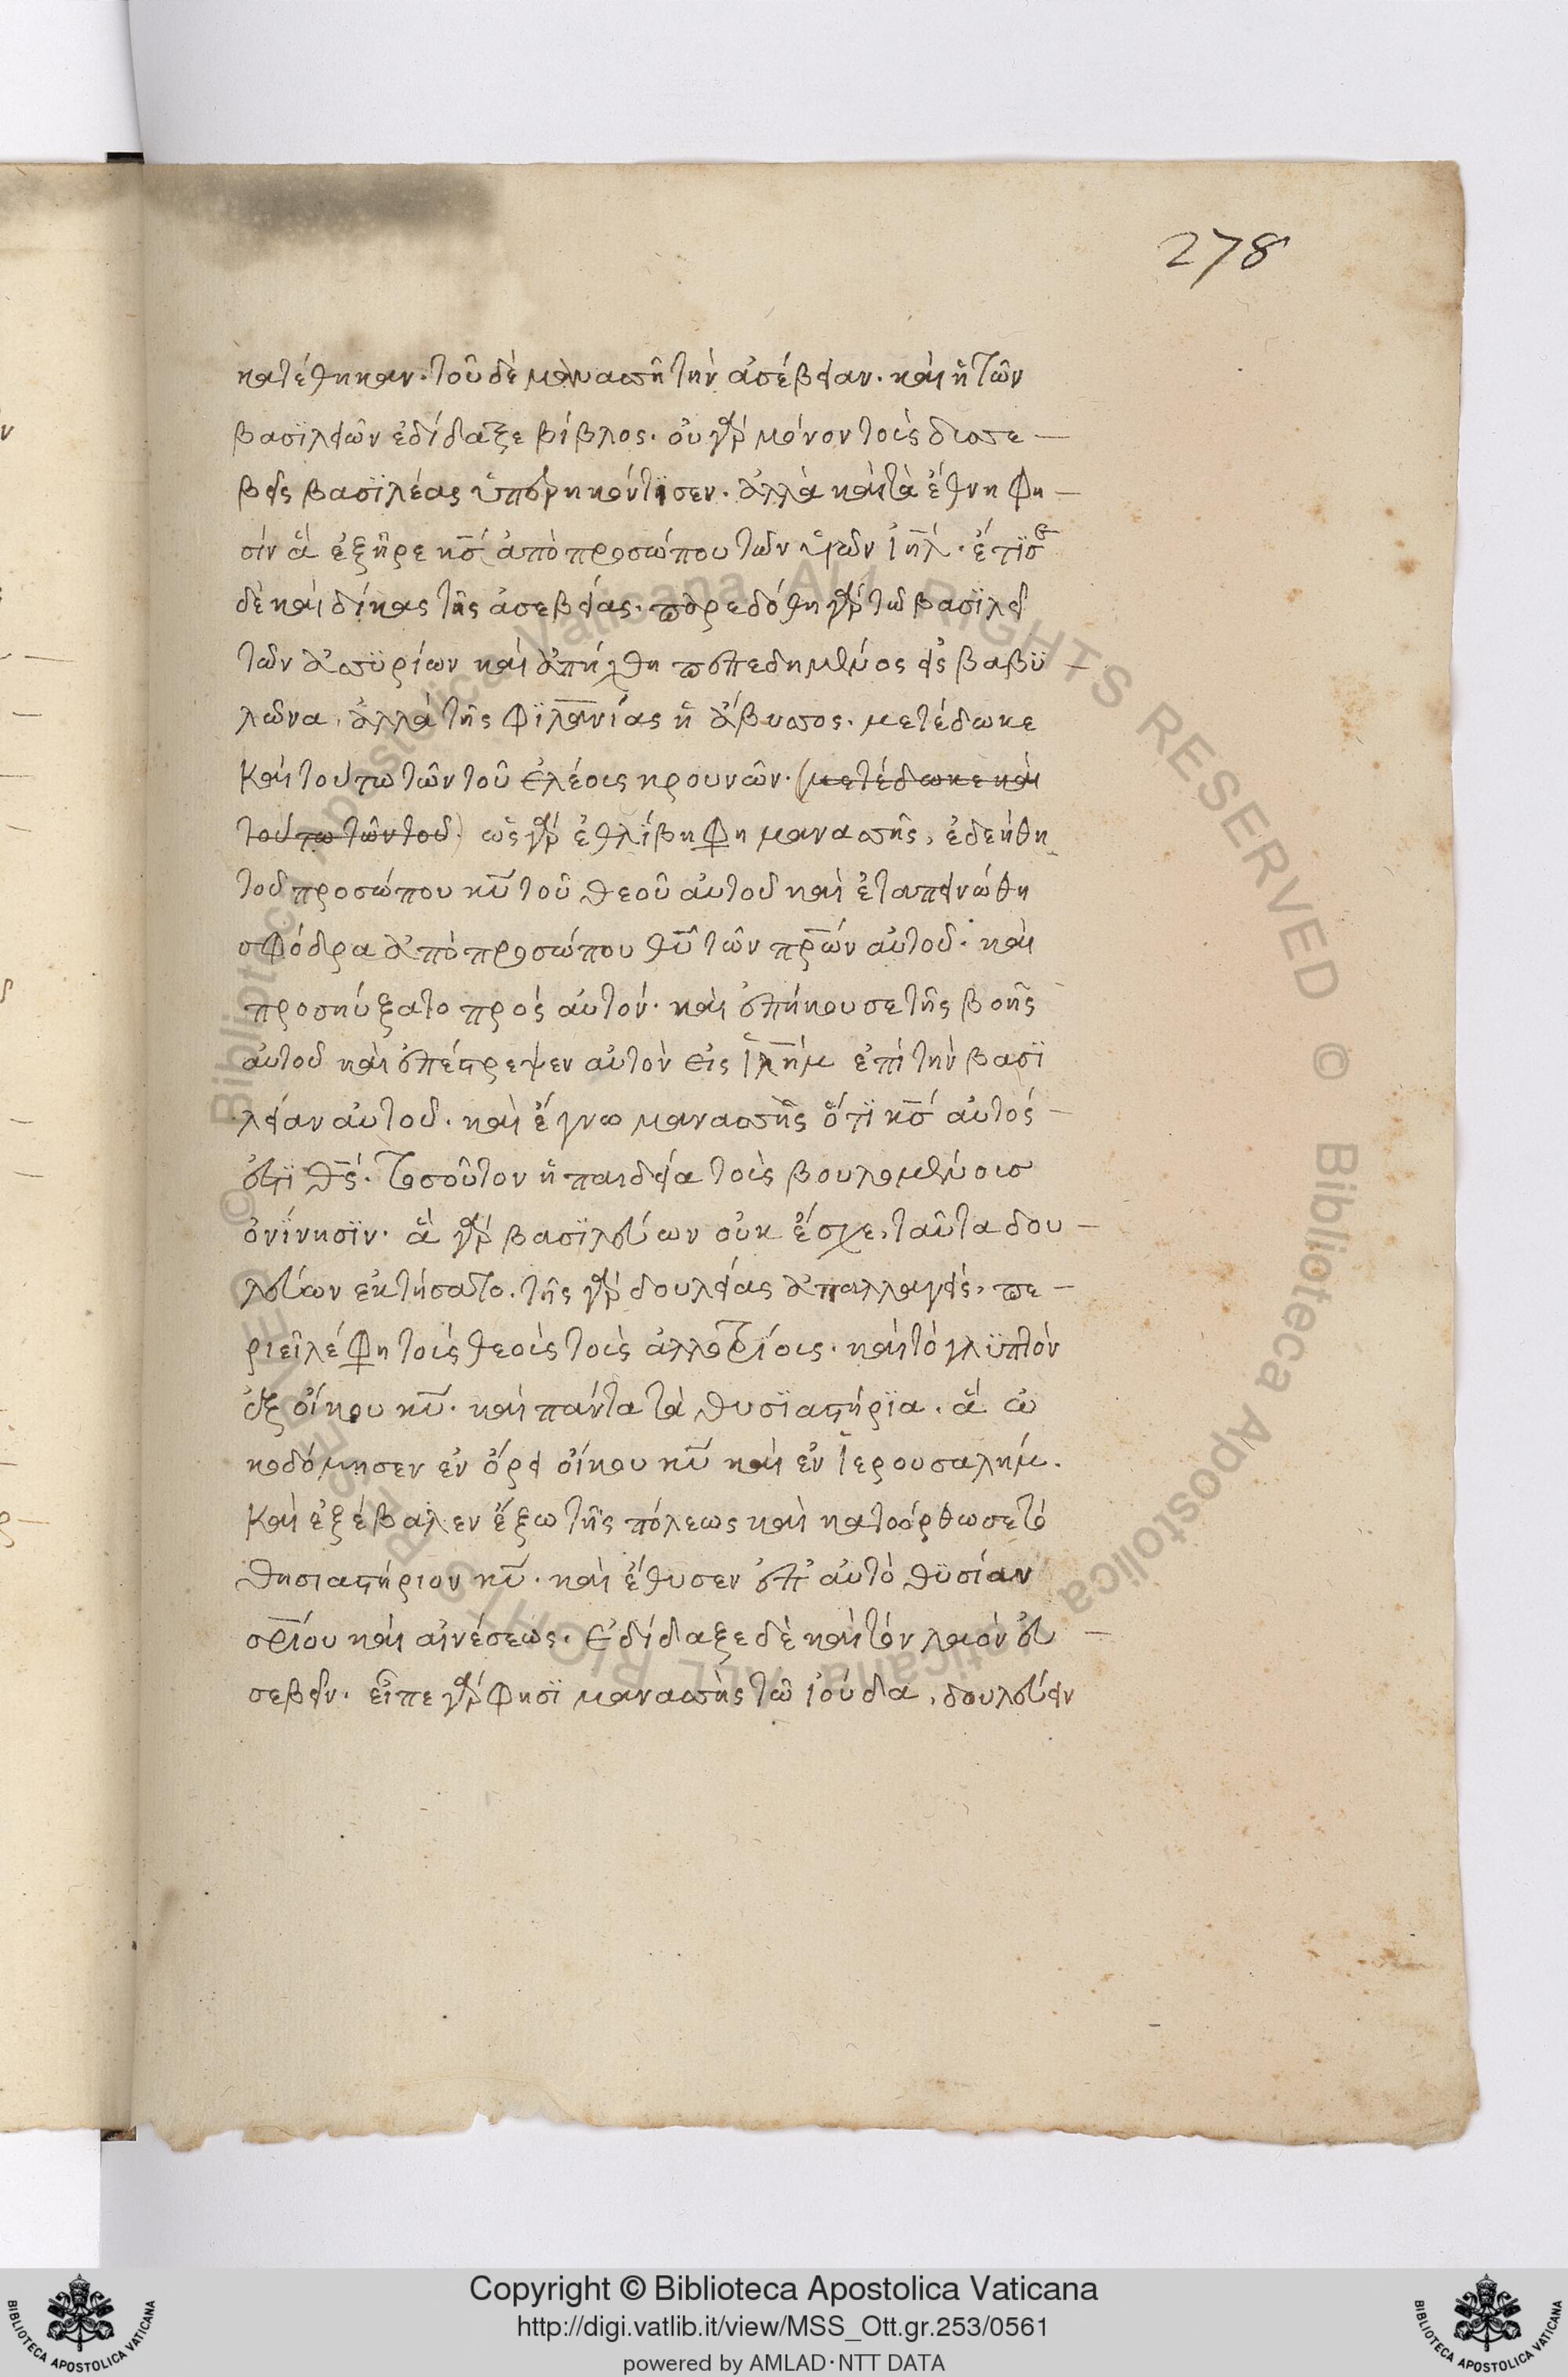 278
κατέθηκαν· τοῦ δὲ μανασσῆ τὴν ἀσέβειαν· καὶ ἡ τῶν
βασϊλειῶν ἐδίδαξε βίβλος· οὐ γὰρ μόνον τοὺς δυσσε –
βεῖς βασϊλέας ὑπερηκόντϊσεν· ἀλλὰ καὶ τὰ ἔθνη φη –
σίν ἃ ἐξῆρε κ̅ς̅ ἀπὸ προσώπου τῶν υἱῶν ι̅η̅λ̅· ἔτϊσε
δὲ καὶ δίκας τῆς ἀσεβείας· παρεδόθη γὰρ τῶ βασϊλεῖ
τῶν ἀσσϋρίων καὶ ἀπήχθη πεπεδημένος εἰς βαβϋ –
λῶνα, ἀλλὰ τῆς φϊλα̅ν̅ίας ἡ ἄβυσσος· μετέδωκε
καὶ τούτω τῶν τοῦ ἐλέους κρουνῶν· (μετέδωκε καὶ
τούτω τῶν τοῦ) ὡς γὰρ ἐθλίβη φη μανασσῆς, ἐδεήθη
τοῦ προσώπου κ̅υ̅ τοῦ θεοῦ αὐτοῦ καὶ ἐταπεινώθη
σφόδρα ἀπὸ προσώπου θ̅υ̅ τῶν π̅ρ̅ῶν αὐτοῦ· καὶ
προσηύξατο πρὸς αὐτόν· καὶ ἐπήκουσε τῆς βοῆς
αὐτοῦ καὶ ἐπέστρεψεν αὐτὸν εἰς ἱ̅λ̅ήμ ἐπὶ τὴν βασϊ
λείαν αὐτοῦ· καὶ ἔγνω μανασσῆς ὅτϊ κ̅ς̅ αὐτός –
ἐστϊ θ̅ς̅· τοσοῦτον ἡ παιδεία τοῖς βουλομένοις
ὀνίνησϊν· ἃ γὰρ βασϊλεύων οὐκ ἔσχε, ταῦτα δου –
λεύων ἐκτήσατο· τῆς γὰρ δουλείας ἀπαλλαγείς, πε –
ριεῖλέ φη τοὺς θεοὺς τοὺς ἀλλοτρίους· καὶ τὸ γλϋπτὸν
ἐξ οἴκου κ̅υ̅· καὶ πάντα τὰ θυσϊαστήρϊα· ἃ ὠ
κοδόμησεν ἐν ὄρει οἴκου κ̅υ̅ καὶ ἐν ἱερουσαλήμ.
καὶ ἐξέβαλεν ἔξω τῆς πόλεως καὶ κατοόρθωσε τὸ
θησιαστήριον κ̅υ̅· καὶ ἔθυσεν ἐπ' αὐτὸ θϋσίαν
σ̅ρ̅ίου καὶ αἰνέσεως· ἐδίδαξε δὲ καὶ τὸν λαὸν εὐ –
σεβεῖν· εἶπε γὰρ φησϊ μανασσῆς τῶ ἰούδα, δουλεύειν
© Biblioteca Apostolica Vaticana ALL RIGHTS RESERVED © Biblioteca Apostolica Vaticana ALL RIGHTS RESERVED
Copyright © Biblioteca Apostolica Vaticana
http://digi.vatlib.it/view/MSS_Ott.gr.253/0561
powered by AMLAD·NTT DATA
BIBLIOTECA APOSTOLICA VATICANA
BIBLIOTECA APOSTOLICA VATICANA